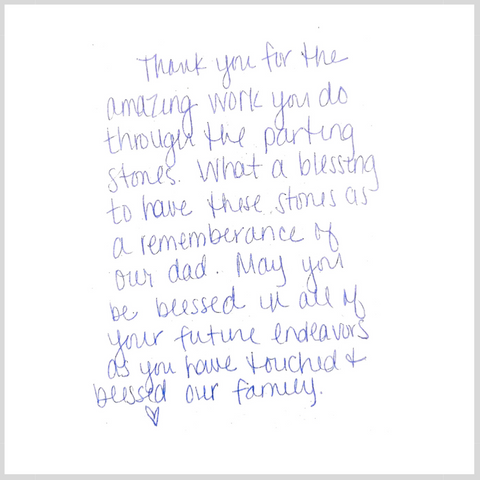 Thank you for the
amazing work you do
through the parting
stones. What a blessing
to have these stones as
a rememberance of
our dad. May you
be blessed in all of
your future endeavors
as you have touched &
blessed our family.
♡